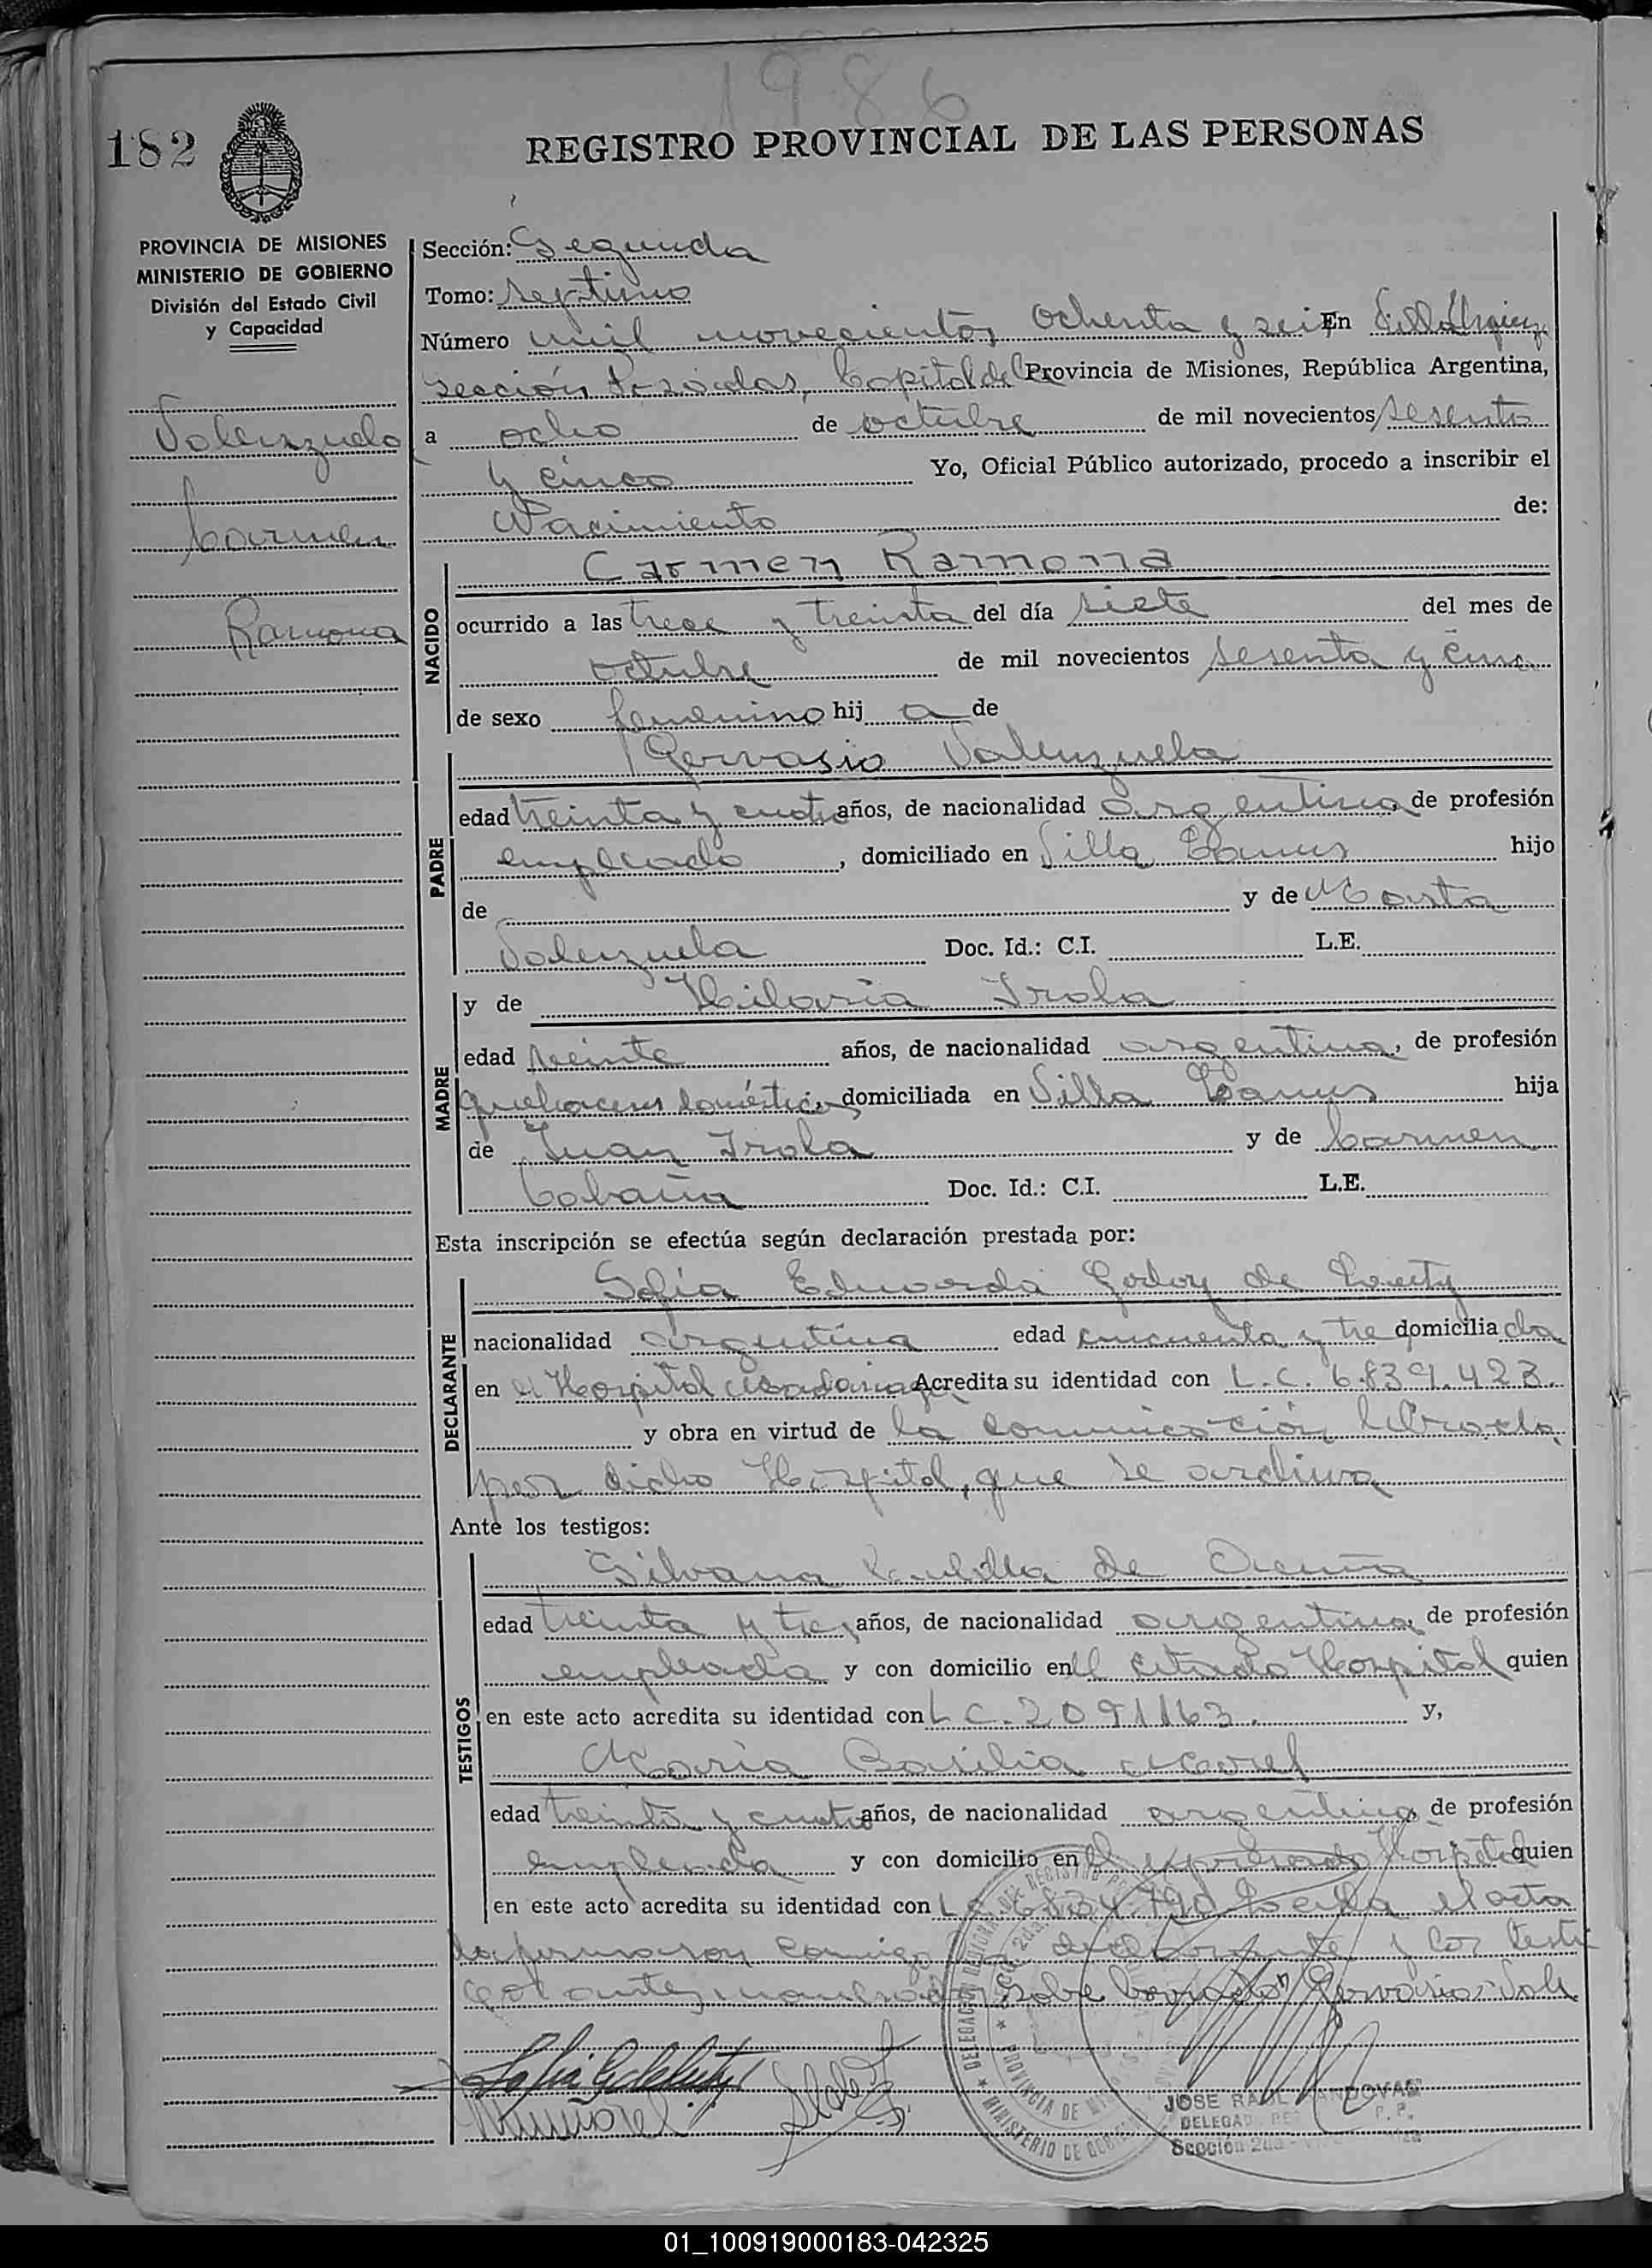 1986
182
REGISTRO PROVINCIAL DE LAS PERSONAS
PROVINCIA DE MISIONES
MINISTERIO DE GOBIERNO
División del Estado Civil
y Capacidad
Valenzuela
Carmen
Ramona
Sección: Segunda
Tomo: septimo
Número mil novecientos ochenta y seis En Villa Urquiza
sección Posadas, Capital de la Provincia de Misiones, República Argentina,
a ocho de octubre de mil novecientos sesenta
y cinco Yo, Oficial Público autorizado, procedo a inscribir el
Nacimiento de:
NACIDO
Carmen Ramona
ocurrido a las trece y treinta del día siete del mes de
octubre de mil novecientos sesenta y cinco
de sexo femenino hij a de
PADRE
Gervasio Valenzuela
edad treinta y cuatro años, de nacionalidad argentina, de profesión
empleado, domiciliado en Villa hijo
de y de Marta
Valenzuela Doc. Id.: C.I. L.E.
MADRE
y de Hilaria Irala
edad veinte años, de nacionalidad argentina, de profesión
quehaceres domésticos, domiciliada en Villa hija
de Juan Irala y de Carmen
Cabaña Doc. Id.: C.I. L.E.
Esta inscripción se efectúa según declaración prestada por:
DECLARANTE
Sofía Eduarda Godoy de
nacionalidad argentina edad cincuenta y tre domicilia da
en el Hospital Acredita su identidad con L.C. 6.839.423.
y obra en virtud de la comunicación librada
por dicho Hospital, que se archiva
Ante los testigos:
TESTIGOS
Silvana de Acuña
edad treinta y tres años, de nacionalidad argentina, de profesión
empleada y con domicilio en el citado Hospital quien
en este acto acredita su identidad con L C. 2091163. y,
María Basilia Morel
edad treinta y cuatro años, de nacionalidad argentina, de profesión
empleada y con domicilio en el expresado Hospital quien
en este acto acredita su identidad con L C Leida el acta
la firmaron conmigo la declarante y los testi
gos antes nombrados sobre borrado Gervasio: Vale
DELEGACION
MINISTERIO DE GOBIERNO
PROVINCIA DE MISIONES
JOSE RAUL SANDOVAL
DELEGAD
Sección 2da
01_100919000183-042325